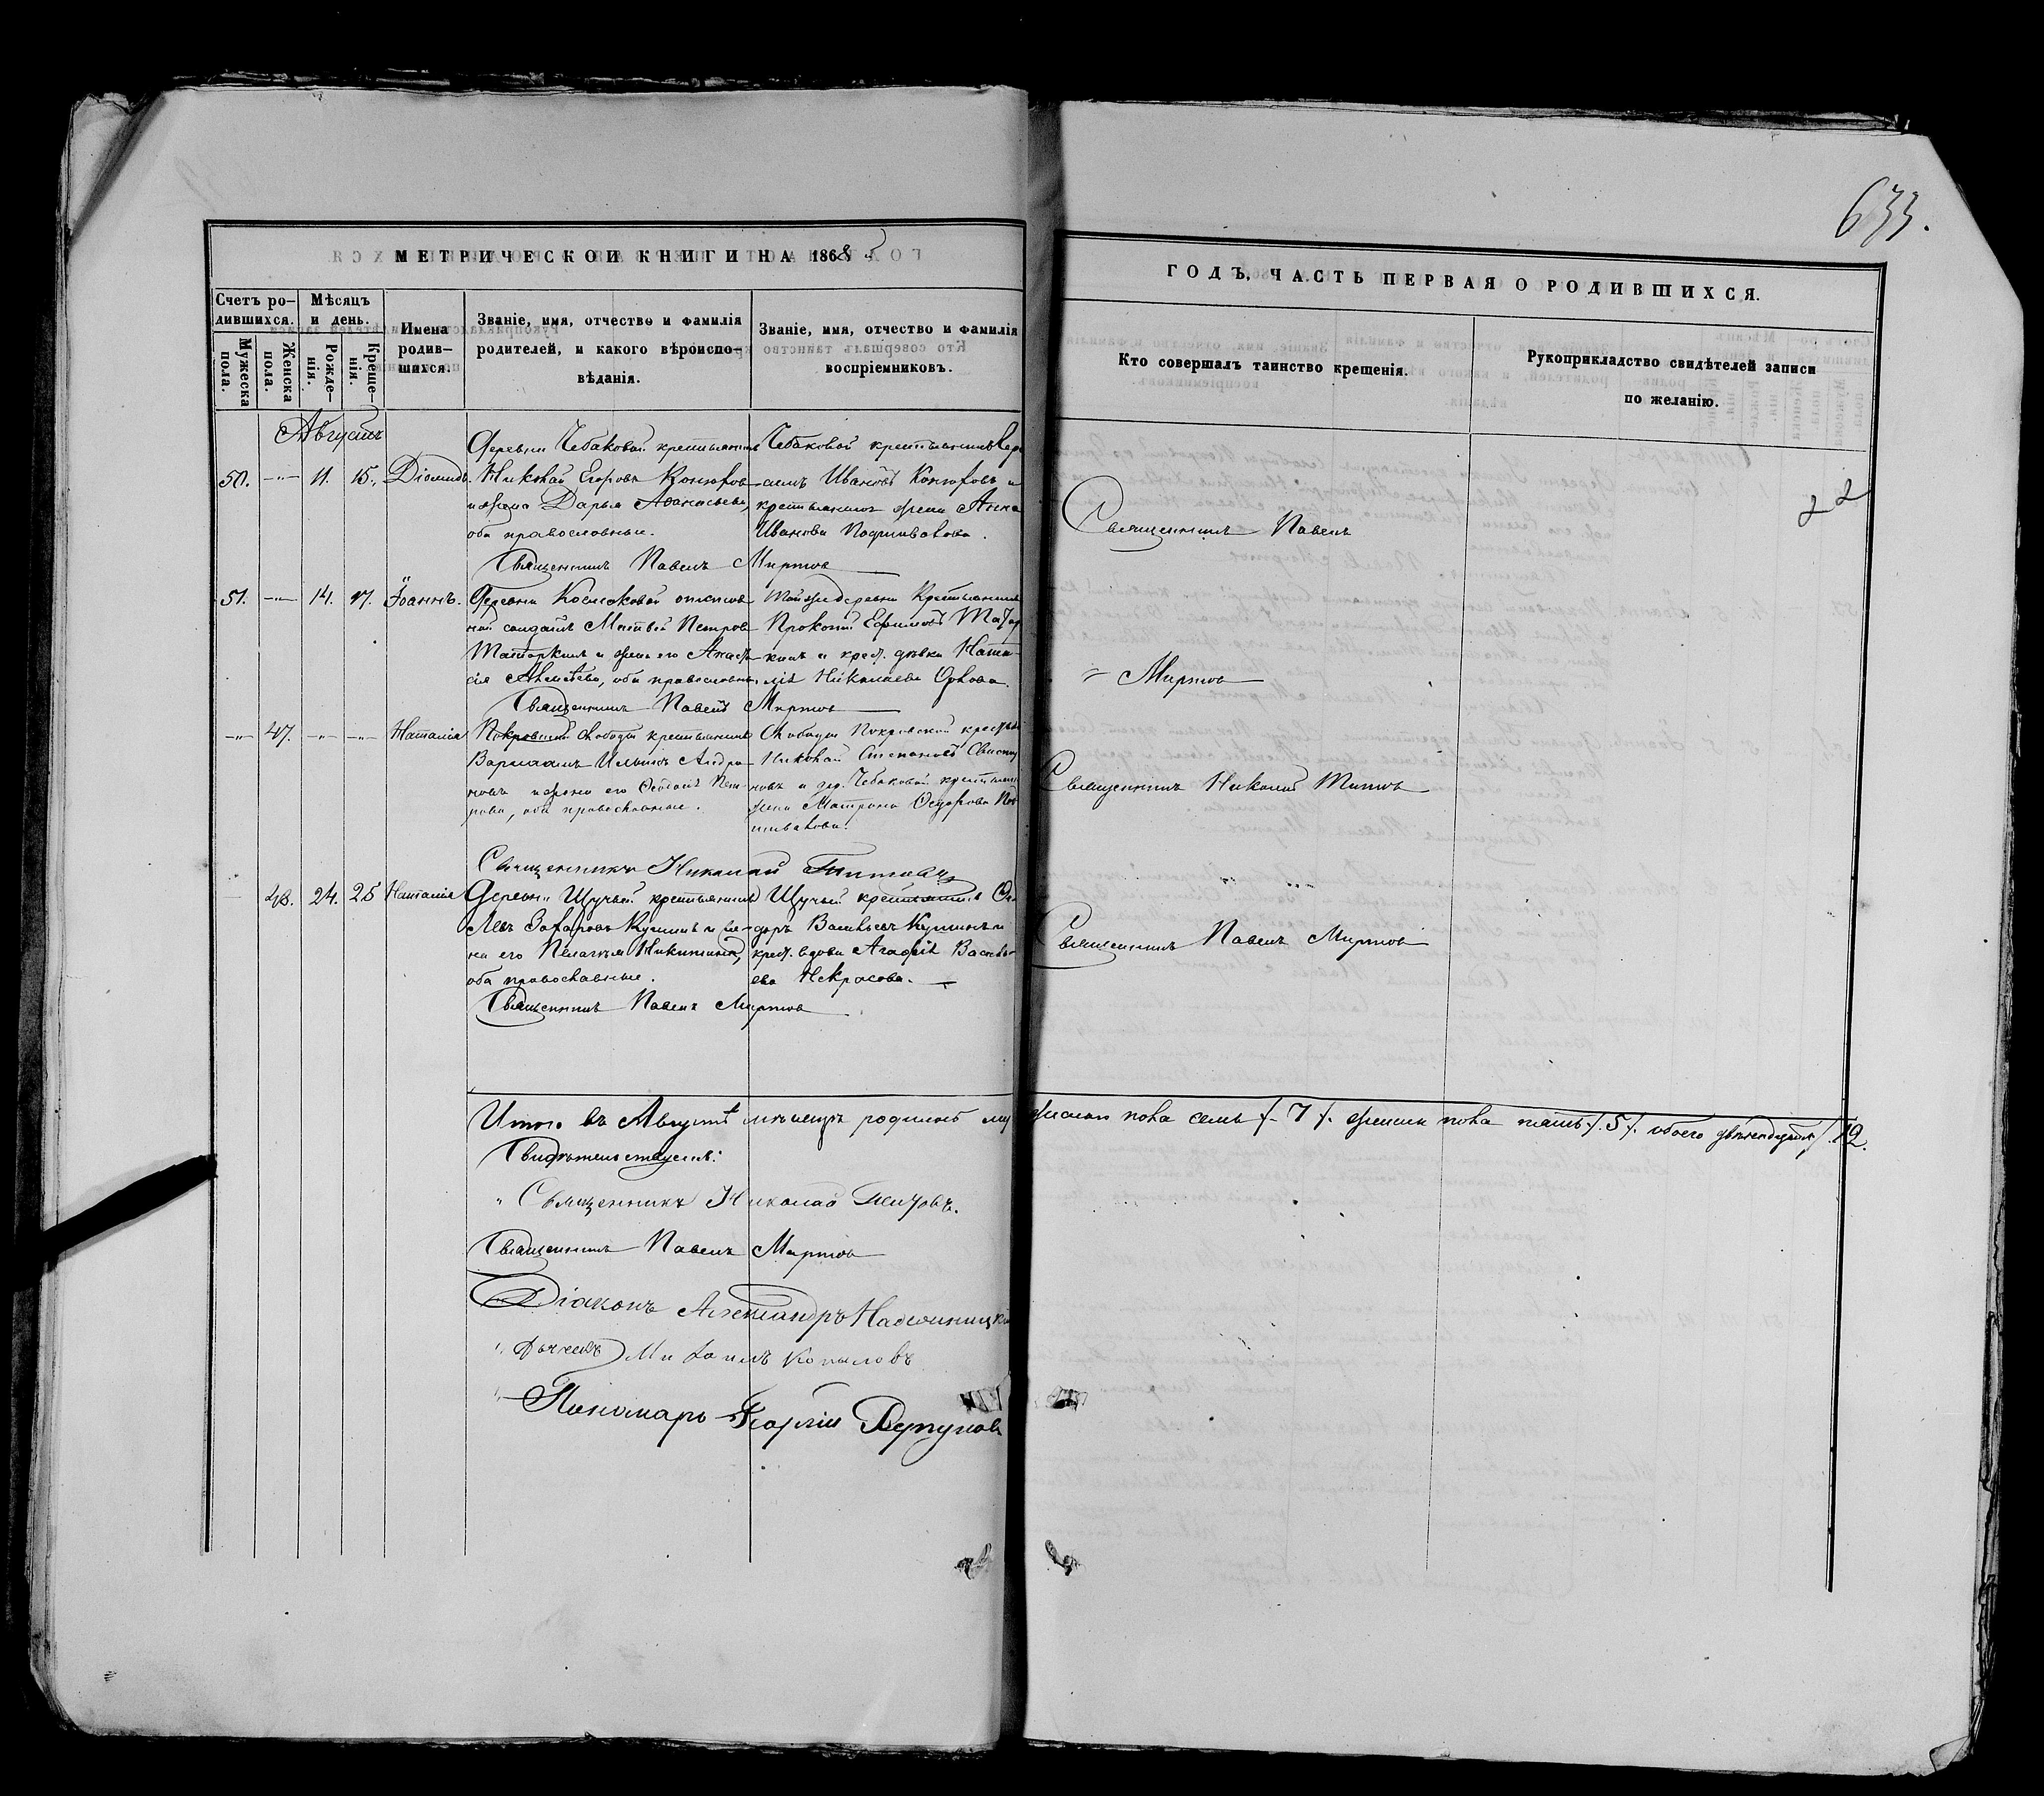 633.
МЕТРИЧЕСКОЙ КНИГИ НА 1868
ГОДЪ, ЧАСТЬ ПЕРВАЯ О РОДИВШИХСЯ.
Счетъ ро-
дившихся.
Мужеска
пола.
Женска
пола.
Мѣсяцъ
и день.
Рожде-
нія.
Креще-
нія.
Имена
родив-
шихся.
Званіе, имя, отчество и фамилія
родителей, и какого вѣроиспо-
вѣданія.
Званіе, имя, отчество и фамилія
воспріемниковъ.
Кто совершалъ таинство крещенія.
Рукоприкладство свидѣтелей записи
по желанію.
Августъ
50. -"- 11. 15. Діомидъ.
Деревни Чебаковой крестьянинъ
Николай Егоровъ Конюховъ
и жена Дарья Аѳанасьева,
оба православные.
Чебаковой крестьянинъ
Ивановъ Конюховъ и
крестьянина жена Анна
Иванова Подшивалова.
Священникъ Павелъ
Миртовъ
Священникъ Павелъ Миртовъ
22
51. -"- 14. 17. Іоаннъ.
Деревни
ной солдатъ Матвей Петровъ
и жена его Анаста-
сія оба православные.
Той же деревни Крестьянинъ
Прокопій Ефимовъ
кинъ и крест. дѣвка Ната-
лія Николаева Орлова.
Священникъ Павелъ Миртовъ
-"- 47. -"- -"- Наталія
Покровской слободы крестьянинъ
Варлаамъ Ильинъ Андро-
новъ и жена его Ѳедосія Пет-
рова, оба православные.
Слободы Покровской крестьян
Николай Степановъ
новъ и дер. Чебаковой крестьян
жена Матрона Ѳедорова Под
шивалова.
Священникъ Николай Титовъ
Священникъ Николай Титовъ
48. 24. 25 Наталія
Деревни Щучьей крестьянинъ
Левъ Захаровъ и же-
на его Пелагия Никитина,
оба православные.
Щучьей крестьянинъ Ѳе-
доръ Васильевъ и
крест. вдова Агафія Василь-
ева Некрасова.
Священникъ Павелъ Миртовъ
Священникъ Павелъ Миртовъ
Итого въ Августѣ мѣсяцѣ родилось му
жеска пола семь /-7/. женска пола пять /.5/. обоего двѣнадцать /.12.
Свидѣтельствуемъ:
" Священникъ Николай Титовъ.
Священникъ Павелъ Миртовъ
Діаконъ Александръ
" Дьячекъ Михаилъ Копыловъ
" Пономарь Георгій